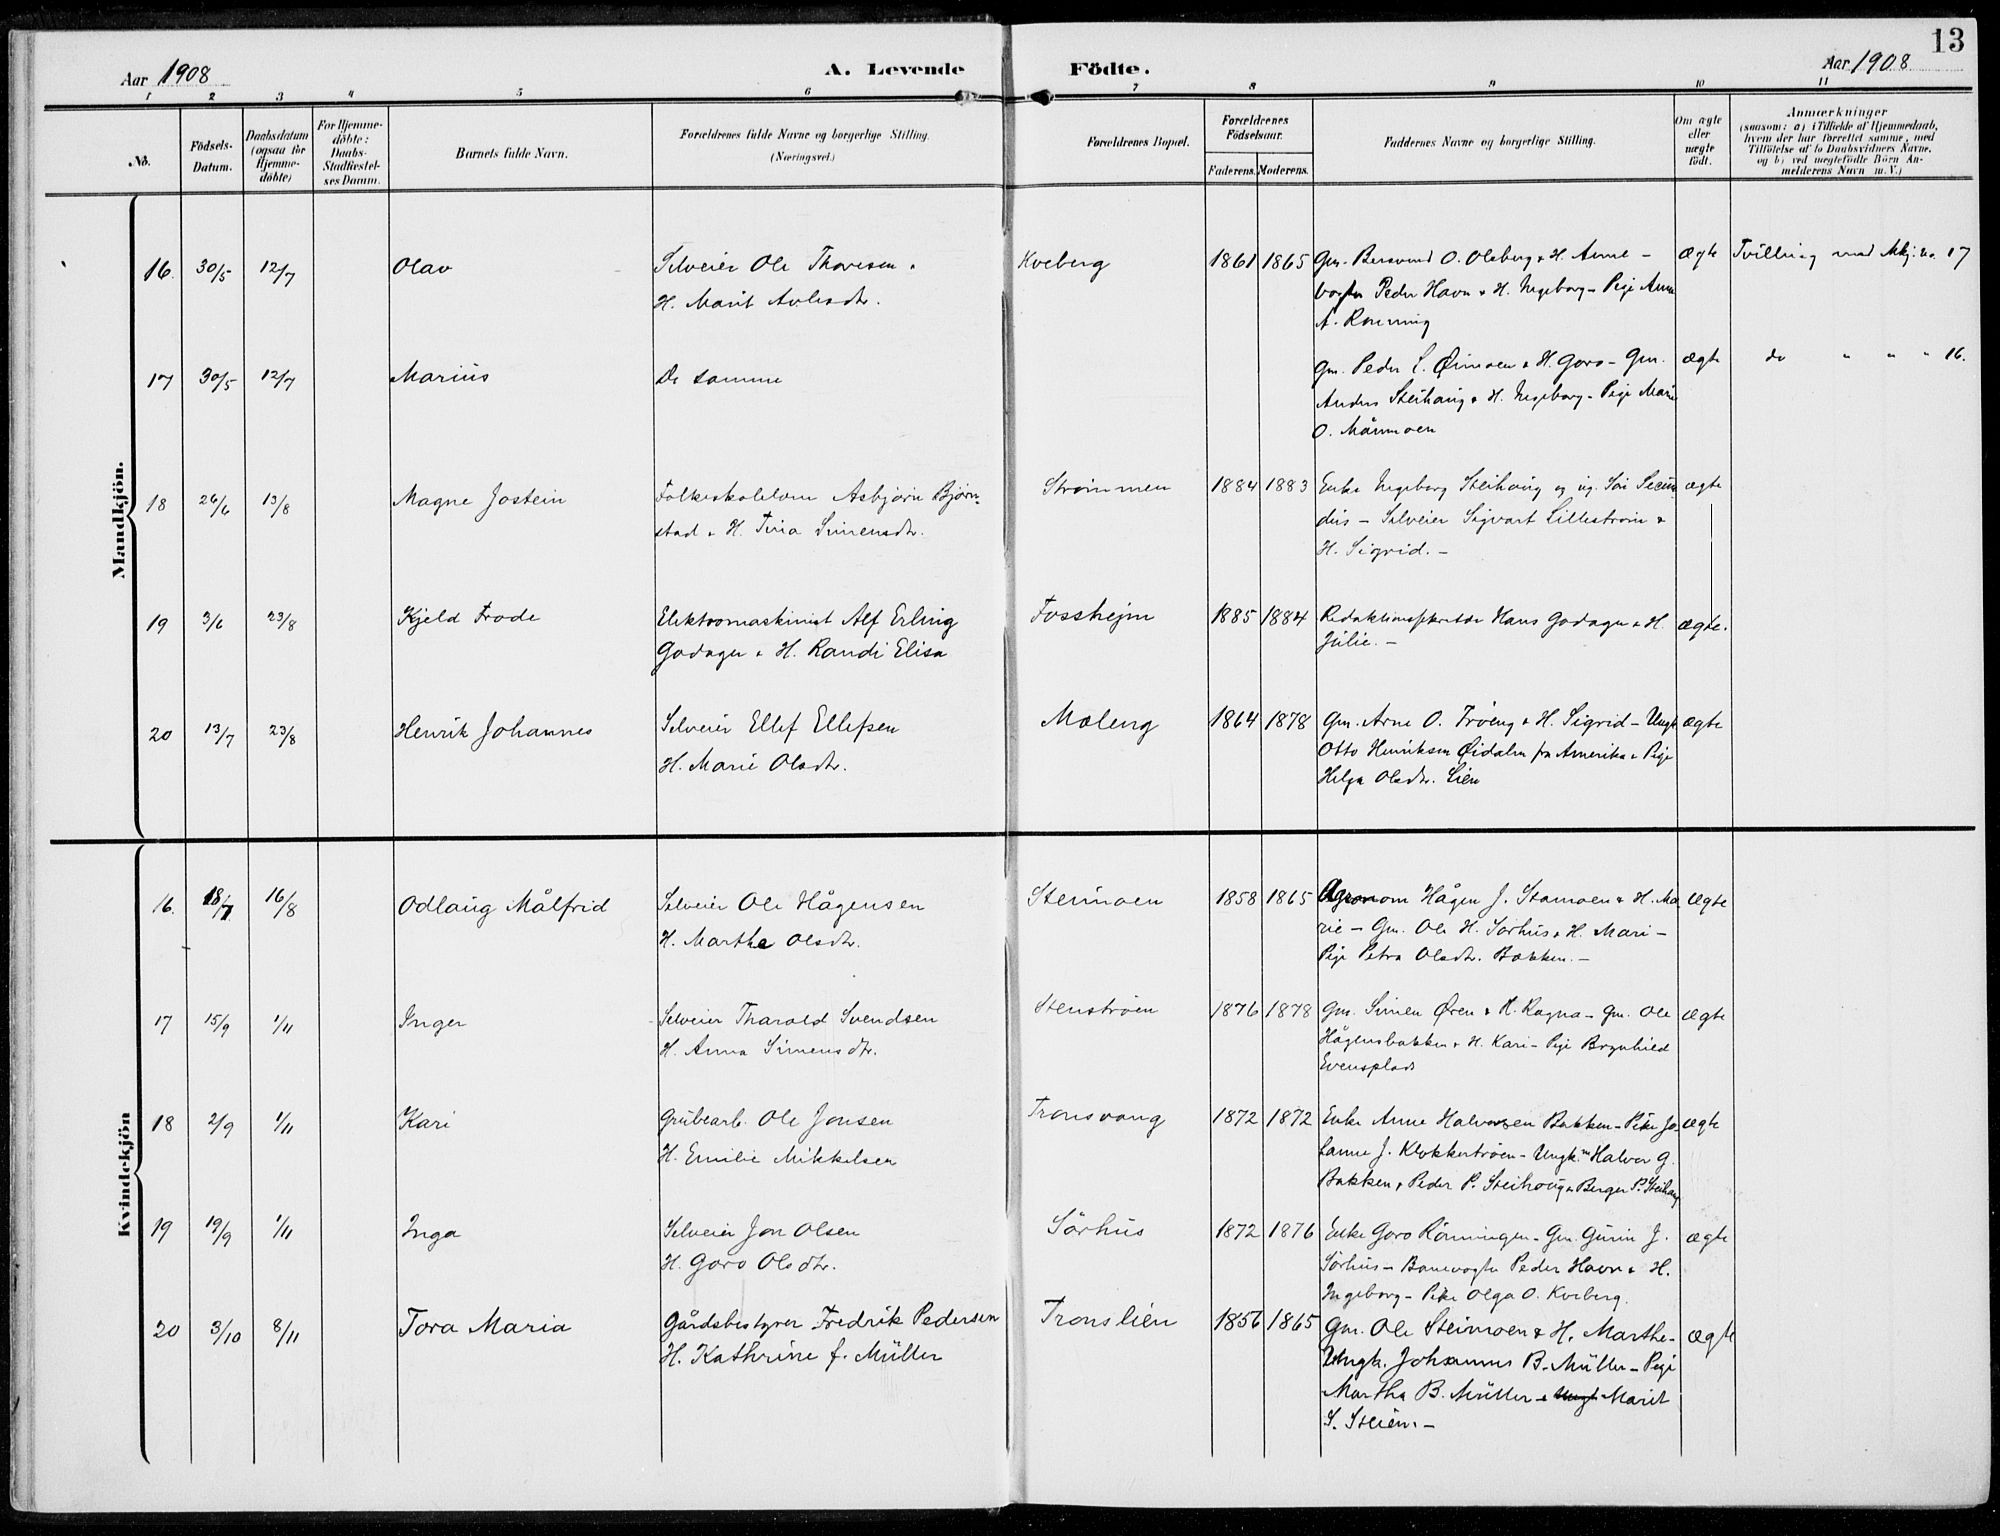 13
Aar 1908
A. Levende Födte.
Aar 1908
1 2 3 4 5 6 7 8 9 10 11
No.
Födsels-Datum.
Daabsdatum (ogsaa for Hjemme-döbte)
For Hjemme-döbte: Daabs-Stadfæstel-ses Datum.
Barnets fulde Navn.
Forældrenes fulde Navne og borgerlige Stilling. (Næringsvei.)
Forældrenes Bopæl.
Forældrenes Födselsaar.
Faderens. Moderens.
Faddernes Navne og borgerlige Stilling.
Om ægte eller uægte födt.
Anmærkninger
(saasom: a) i Tilfælde af Hjemmedaab, hvem der har forrettet samme, med Tilföielse af to Daabsvidners Navne, og b) ved uægtefödte Börn An-melderens Navn m. V.)
Mandkjön.
16. 30/5 12/7 Olav Selveier Ole Thoresen . Kveberg 1861 1865 Gm. Bersvend O. Oleberg & H. Anne – Ægte Tvilling med Mkj. no 17
H. Marit Avlesdtr. Peder Havn & H. Ingeborg – Pige Anne
A. Rønning
17 30/5 12/7 Marius De samme Gm. Peder Øimoen & H. Goro – Gm. ægte do " " " 16.
Anders Steihaug & H. Ingeborg – Pige Marie
O. Månmoen
18 26/6 13/8 Magne Jostein Folkeskolelærer Asbjørn Bjørn- Strømmen 1884 1883 Enke Ingeborg Steihaug og ug. Søn Secun ægte
stad & H. Tina Simensdtr. dus – Selveier Sigvart Lillestrøm &
H. Sigrid. –
19 3/6 23/8 Kjeld Frode Elektromaskinist Alf Erling Fossheim 1885 1884 Redaktionssekretær Hans Godager & H. ægte.
Godager & H. Randi Elisa Julie. –
20 13/7 23/8 Henrik Johannes Selveier Ellef Ellefsen Moleng 1864 1878 Gm. Arne O. Trøeng & H. Sigrid – Ungk ægte
H. Marie Olsdtr. Otto Henriksen Øidalen fra Amerika & Pige
Helga Olsdtr. Lien
Kvindekjön
16. 18/7 16/8 Odlaug Målfrid Selveier Ole Hågensen Steimoen 1858 1865 Agronom Hågen J. Stamoen & H. Ma Ægte
H. Marthe Olsdtr. rie – Gm. Ole H. Sørhus & H. Mari –
Pige Petra Olsdtr. Bakken. –
17 15/9 1/11 Inger Selveier Tharald Svendsen Stenstrøen 1876 1878 Gm. Simen Øren & H. Ragna – Gm. Ole Ægte
H. Anna Simensdtr. Hågensbakken & H. Kari – Pige Brynhild
Evensplads
18 2/9 1/11 Kari Grubearb. Ole Jonsen Tronsvang 1872 1872 Enke Anne Halvorsen Bakken – Pike Jo- Ægte
H. Emilie Mikkelsen hanne J. Klokkertrøen – Ungk. Halvor G.
Bakken, Peder P. Steihaug & Berger P. Steihaug
19 19/9 1/11 Inga Selveier Jon Olsen Sørhus 1872 1876 Enke Goro Rønningen – Gm. Gunn J. ægte
H. Goro Olsdtr. Sørhus – Banevogter Peder Havn & H.
Ingeborg – Pike Olga O. Kveberg.
20 3/10 8/11 Tora Maria Gårdsbestyrer Fredrik Pedersen Tronslien 1856 1865 Gm. Ole Steimoen & H. Marthe – Ægte
H. Kathrine f. Müller Ungk. Johannes B. Müller – Pige
Martha B. Müller & Ungk Marit
S. Steien. –